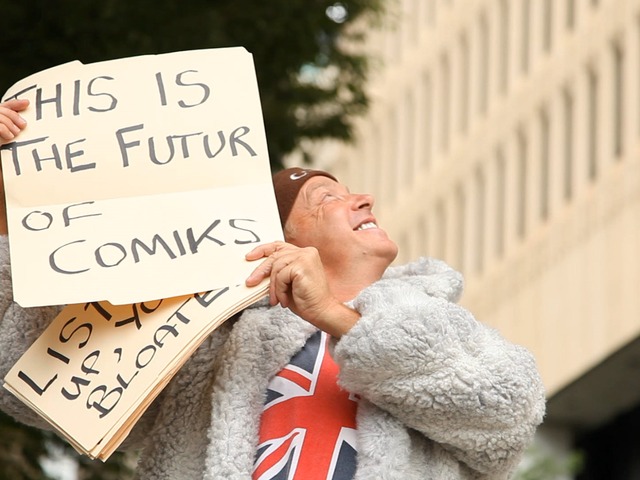 THIS IS
THE FUTUR
OF
COMIKS
LIST
UP,
BLOATE